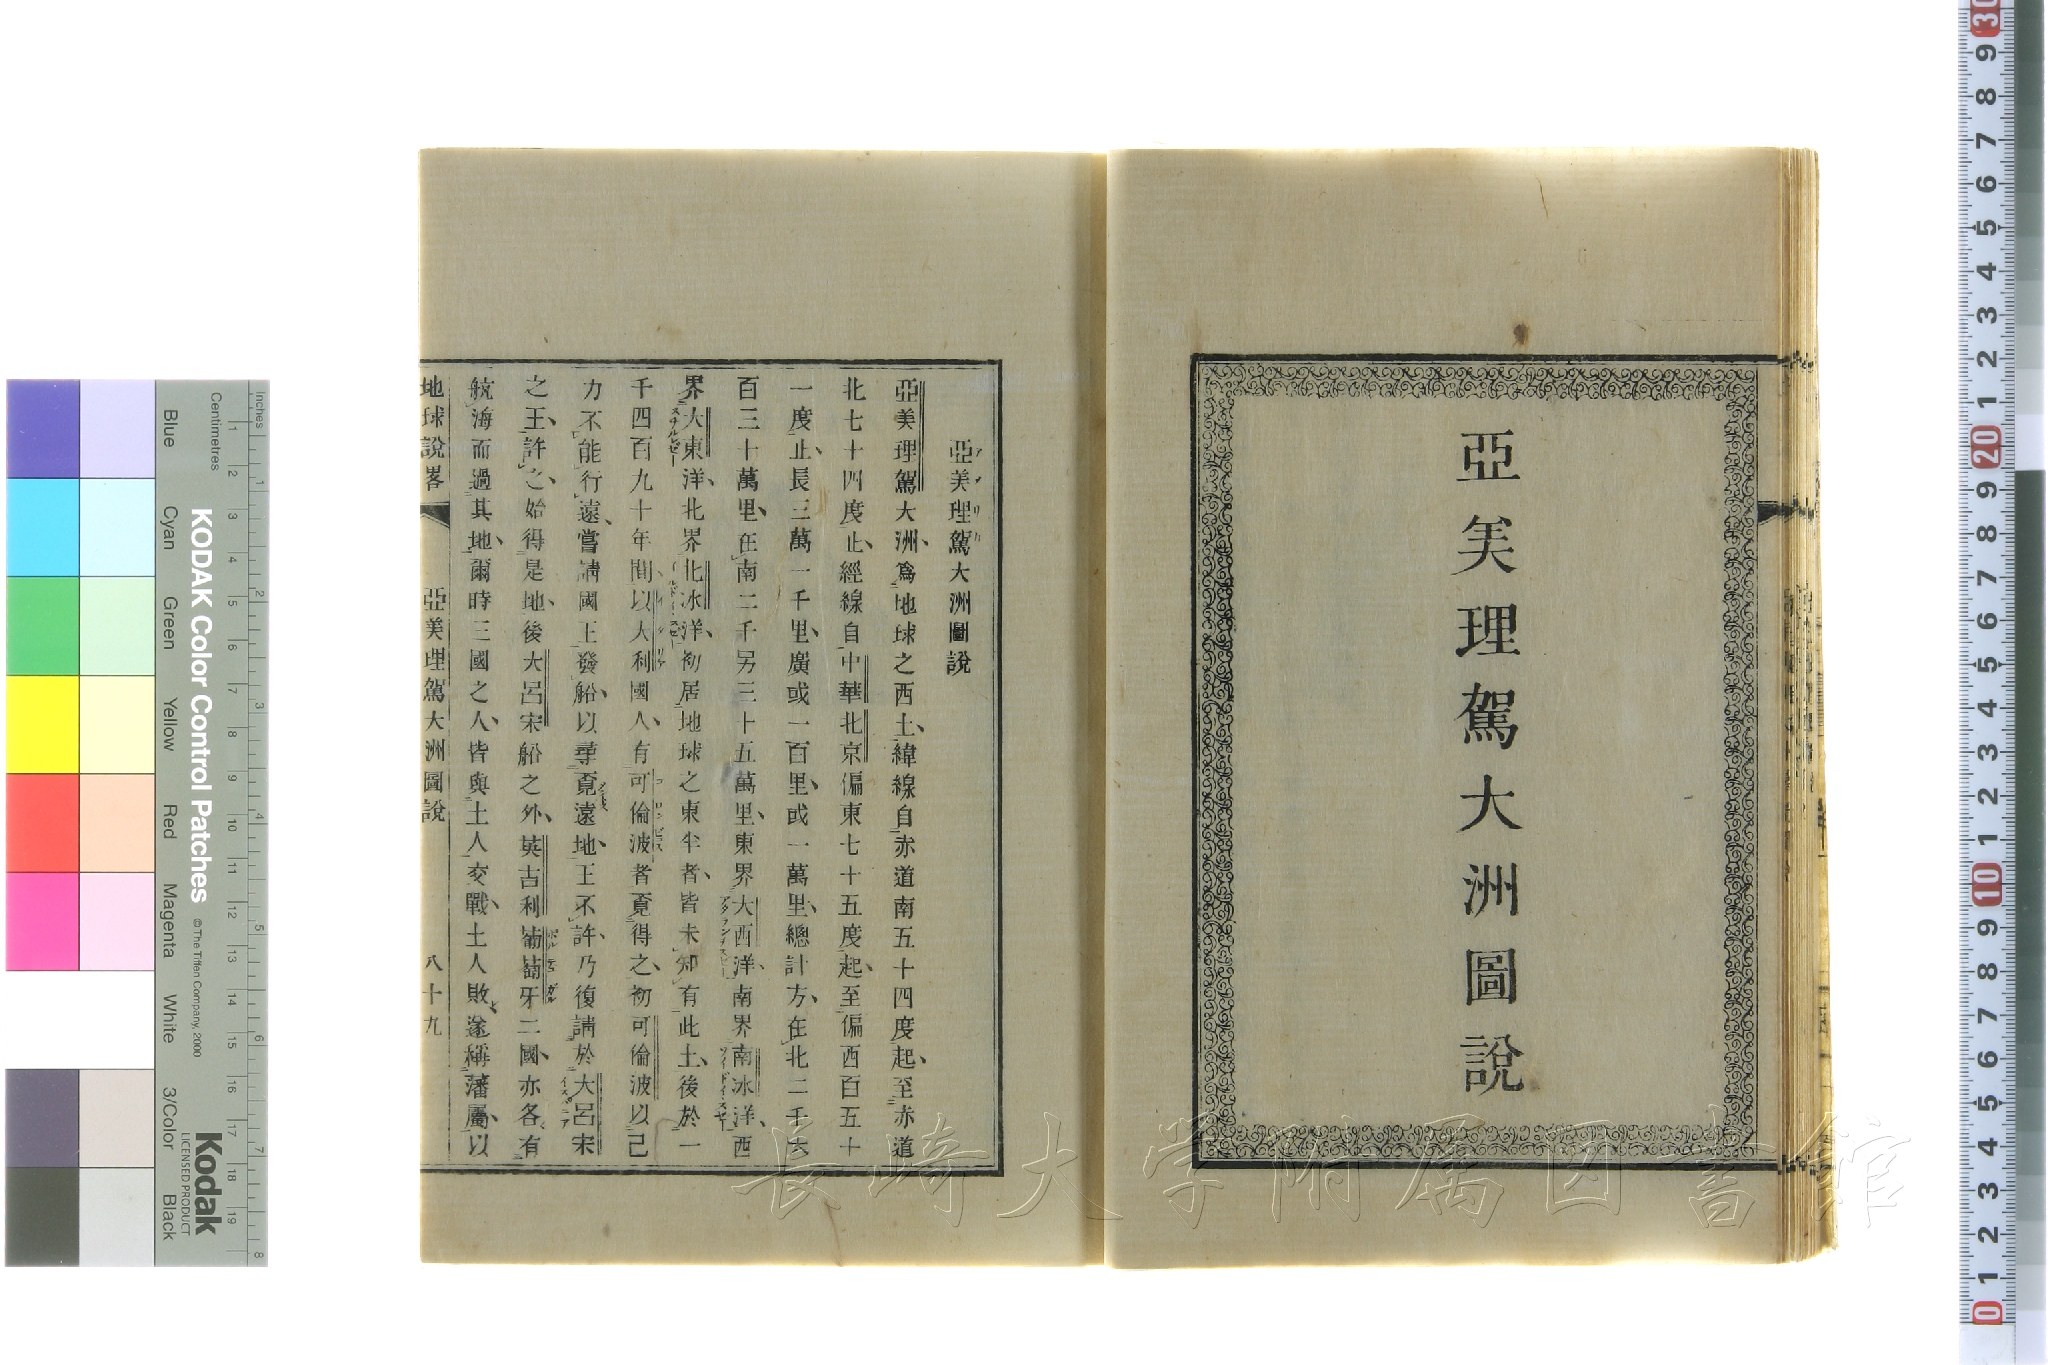 亞美理駕大洲圖說
亞美理駕大洲圖說
亞美理駕大洲、爲地球之西土、緯線自赤道南五十四度起、至赤道
北七十四度止、經線自中華北京偏東七十五度起、至偏西百五十
一度止、長三萬一千里、廣或一百里、或一萬里、總計方、在北二千六
百三十萬里、在南二千另三十五萬里、東界大西洋、南界南冰洋、西
界大東洋、北界北冰洋、初居地球之東半者、皆未知有此土、後於一
千四百九十年間、以大利國人、有可倫波者覔得之、初可倫波以己
力不能行遠、嘗請國王發船、以尋覔遠地、王不許、乃復請於大呂宋
之王、許之、始得是地、後大呂宋船之外、英吉利葡萄牙二國、亦各有
航海而過其地、爾時三國之人、皆與土人交戰、土人敗、遂稱藩屬、以
地球說畧
亞美理駕大洲圖說
八十九
長崎大学附属図書館
KODAK Color Control Patches
© The Tiffen Company, 2000
Kodak
LICENSED PRODUCT
Inches
Centimetres
Blue
Cyan
Green
Yellow
Red
Magenta
White
3/Color
Black